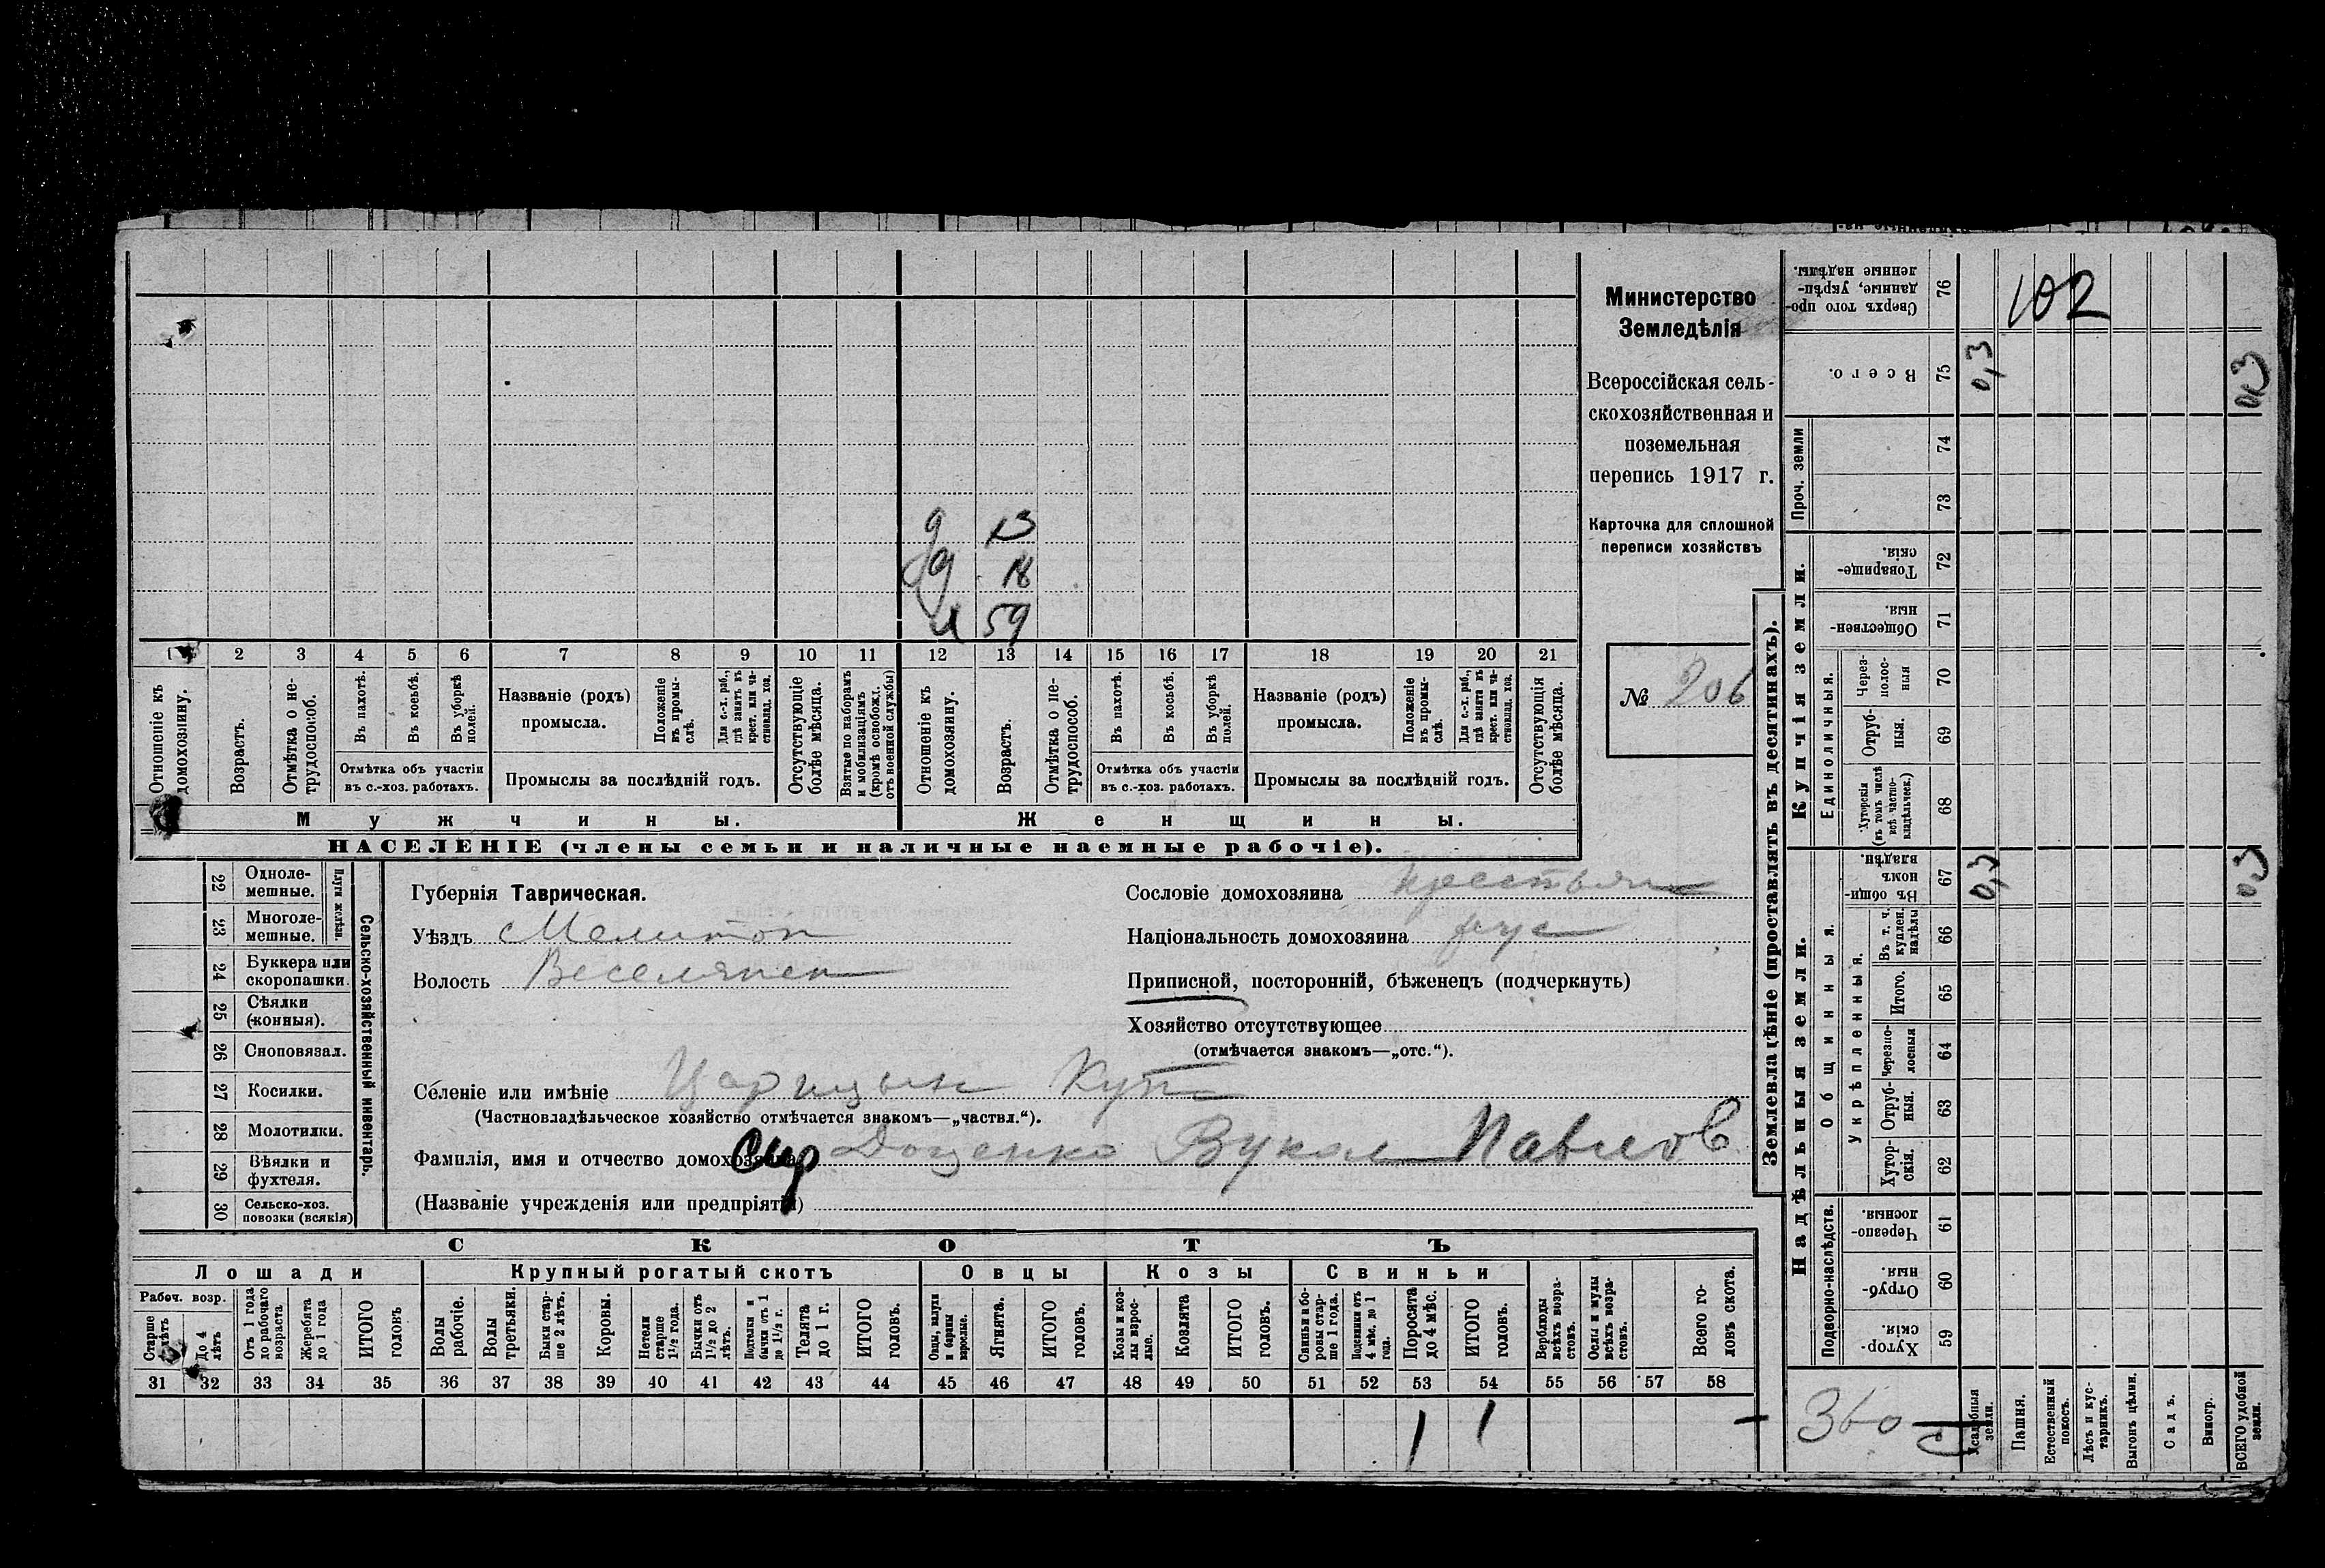 102
Министерство
Земледѣлія
Всероссійская сель-
скохозяйственная и
поземельная
перепись 1917 г.
Карточка для сплошной
переписи хозяйствъ
№ 206
д 13
д 18
59
1 2 3 4 5 6 7 8 9 10 11 12 13 14 15 16 17 18 19 20 21
Отношеніе къ домохозяину.
Возрастъ.
Отмѣтка о не-трудоспособ.
Въ пахотѣ.
Въ косьбѣ.
Въ уборкѣ полей.
Отмѣтка объ участіи
въ с.-хоз. работахъ.
Названіе (родъ)
промысла.
Положеніе въ промы-слѣ.
Для с.-х. раб., гдѣ занятъ въ крест. или ча-стновлад. хоз.
Промыслы за послѣдній годъ.
Отсутствующіе болѣе мѣсяца.
Взятые по наборамъ и мобилизаціямъ (кромѣ освобожд. отъ военной службы)
Отношеніе къ домохозяину.
Возрастъ.
Отмѣтка о не-трудоспособ.
Въ пахотѣ.
Въ косьбѣ.
Въ уборкѣ полей.
Отмѣтка объ участіи
въ с.-хоз. работахъ.
Названіе (родъ)
промысла.
Положеніе въ промы-слѣ.
Для с.-х. раб., гдѣ занята въ крест. или ча-стновлад. хоз.
Промыслы за послѣдній годъ.
Отсутствующія болѣе мѣсяца.
Мужчины.
Женщины.
НАСЕЛЕНІЕ (члены семьи и наличные наемные рабочіе).
22 Одноле-мешные.
23 Многоле-мешные.
Плуги желѣзн.
24 Буккера или скоропашки
25 Сѣялки (конныя).
26 Сноповязал.
27 Косилки.
28 Молотилки.
29 Вѣялки и фухтеля.
30 Сельско-хоз. повозки (всякія)
Сельско-хозяйственный инвентарь.
Губернія Таврическая.
Уѣздъ Мелитоп
Волость Веселянск
Сословіе домохозяина крестьян
Національность домохозяина рус
Приписной, посторонній, бѣженецъ (подчеркнуть)
Хозяйство отсутствующее
(отмѣчается знакомъ—„отс.“).
Селеніе или имѣніе Царицын Кут
(Частновладѣльческое хозяйство отмѣчается знакомъ—„частвл.“).
Фамилія, имя и отчество домохозяина Доценко Вукол Павлов
(Названіе учрежденія или предпріятія)
СКОТЪ
Лошади
Крупный рогатый скотъ
Овцы
Козы
Свиньи
Рабоч. возр.
Старше 4 лѣтъ
До 4 лѣтъ
Отъ 1 года до рабочаго возраста
Жеребята до 1 года
ИТОГО головъ
Волы рабочіе.
Волы третьяки.
Быки стар-ше 2 лѣтъ.
Коровы.
Нетели старше 1½ года.
Бычки отъ 1½ до 2 лѣтъ.
Подтелки и бычки отъ 1 до 1½ г.
Телята до 1 г.
ИТОГО головъ.
Овцы, валухи и бараны взрослые.
Ягнята.
ИТОГО головъ.
Козы и коз-лы взрос-лые.
Козлята
ИТОГО головъ.
Свиньи и бо-ровы стар-ше 1 года.
Подсвинки отъ 4 мѣс. до 1 года.
Поросята до 4 мѣс.
ИТОГО головъ.
Верблюды всѣхъ возра-стовъ.
Ослы и мулы всѣхъ возра-стовъ.
Всего го-ловъ скота.
31 32 33 34 35 36 37 38 39 40 41 42 43 44 45 46 47 48 49 50 51 52 53 54 55 56 57 58
1 1 –
Землевладѣніе (проставлять въ десятинахъ).
Надѣльныя земли.
Купчія земли.
Проч. земли
Подворно-наслѣдств.
Общинныя.
Укрѣпленныя.
Единоличныя.
76 Сверхъ того про-данные, укрѣп-ленные надѣлы.
75 Всего. 0,3 0,3
74
73
72 Товарище-скія.
71 Обществен-ныя.
70 Через-полос-ныя
69 Отруб-ныя.
68 Хуторскія (въ томъ числѣ всѣ частно-владѣльческ.)
67 Въ общи-номъ владѣн. 0,3 0,3
66 Въ т. ч. куплен. надѣлы
65 Итого.
64 Черезпо-лосныя
63 Отруб-ныя.
62 Хутор-скія.
61 Черезпо-лосныя.
60 Отруб-ныя.
59 Хутор-скія.
360
Усадебныя земли.
Пашня.
Естественный покосъ.
Лѣсъ и кус-тарникъ.
Выгонъ цѣлин.
Садъ.
Виногр.
ВСЕГО удобной земли.